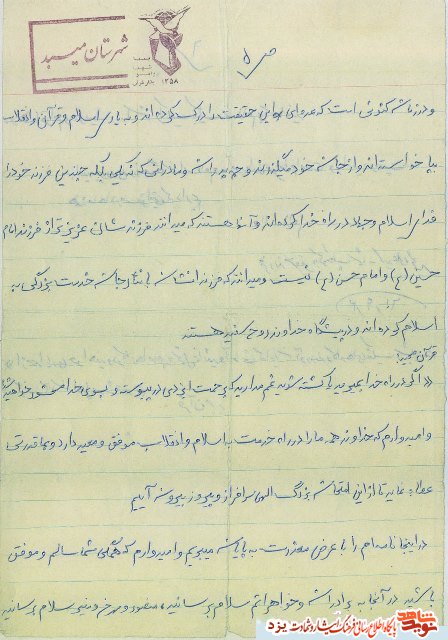 شهرستان میبد
۱۳۵۸
ص ۵
و در زمانه کنونی است که عده‌ای این حقیقت را درک کرده‌اند و به یاری اسلام و قرآن و انقلاب
بپا خواسته‌اند و از جان خود میگذرند و چه پدران و مادرانی که نه یکی بلکه چندین فرزند خود را
فدای اسلام و جهاد در راه خدا کرده‌اند و آنها هستند که میدانند فرزندشان عزیزتر از فرزند امام
حسین (ع) و امام حسن (ع) نیست و میدانند که فرزندانشان با نثار جان خدمت بزرگی به
اسلام کرده‌اند و در پیشگاه خداوند رو سفید هستند
قرآن مجید:
«اگر در راه خدا بمیرید یا کشته شوید غم مدارید که به رحمت ایزدی در پیوسته و بسوی خدا محشور خواهید شد»
و امیدوارم که خداوند همه ما را در راه خدمت به اسلام و انقلاب موفق و موید دارد و بما قدرتی
عطا نماید تا از این امتحان بزرگ الهی سرافراز و پیروز بیرون آییم
در اینجا نامه‌ام را با عرض معذرت به پایان میبرم و امیدوارم که همگی شما سالم و موفق
باشید در آنجا به برادران و خواهرانم سلام برسانید، سلام برسانید
شهید نوید
پایگاه اطلاع رسانی فرهنگ ایثار و شهادت یزد